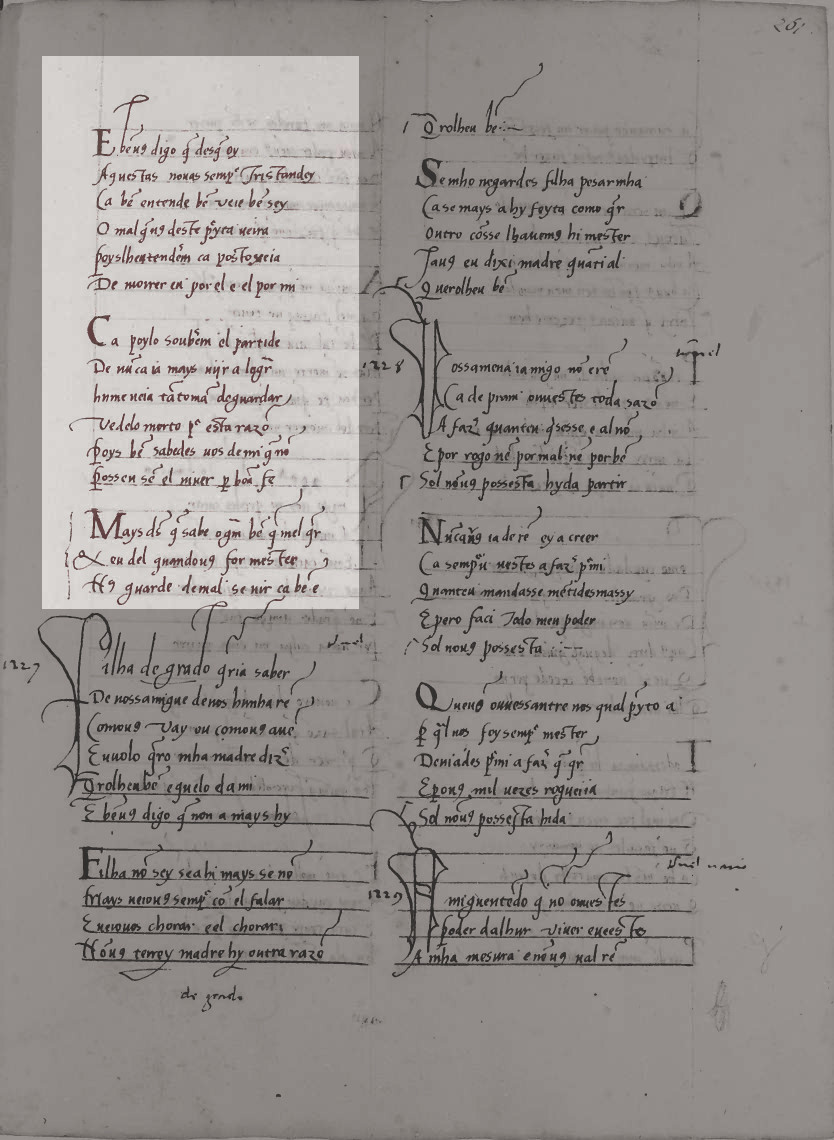 E beuꝯ digo q̄ desq̄ oy
Aquestas nouas semp̄ Tristandey
Ca bē entende bē ueie bē sey
O mal q̄uꝯ deste p̄yto uerra
poyslhentendērē ca posto xeia
De morrer eu por el e el por mi
Ca poylo soubērē el partide
De nūca ia mays uijr a logr̄
hu me ueia tā toma deguardar
Vedelo morto pr̄ esta razō
poys bē sabedes uos demi q̄ nō
possen sē el uiuer p̱ boā fe
Mays ds̄ q̄ sabe o gr̄m bē q̄ mel q̄r
& eu del quandouꝯ for mester
Nꝯ guarde demal se uir ca bē e
1227
Filha de grado q̄ria saber
De uossamigue deuos hunha rē
Comouꝯ Vay ou comouꝯ auē
Euuolo q̄ro mha madre dizr̄
Q̄rolheu bē e quelo da mi
E beuꝯ digo q̄ non a mays hy
Filha nō sey sea hi mays se nō
Mays ueiouꝯ semp̄ cō el falar
E ueiouos chorar e el chorar
Nōuꝯ terrey madre hy outra razō
de grado
261
Q̄rolheu bē
Se mho negardes filha pesarmha
Ca se mays a hy feyta como q̄r
Outro cōsselhauemꝯ hi mester
Jauꝯ eu dixi madre quāti a l
Querolheu bē
1228
Vossa menaz amigo nō er e
Ca de pram ouuestes toda sazō
A fazr̄ quanteu q̄sesse e al nō
E por rogo nē por mal nē por bē
Sol nōuꝯ possesta hyda partir
Nūcauꝯ ia de rē ey a creer
Ca semp̄u uestes a fazr̄ p̄mi
Quanteu mandasse mētides massy
E pero faci Todo meu poder
Sol nouꝯ possesta
Queuꝯ ouuessantre nos qual p̄yto a
p̱ q̄l uos foy semp̄ mester
Deuiades p̄mi a fazr̄ q̄ q̄r
E porꝯ mil uezes rogueiia
Sol nōuꝯ possesta hida
1229
Amiguentēdo q̄ nō ouuestes
poder dalhur viuer e ueestes
A mha mesura e nōuꝯ ual rē